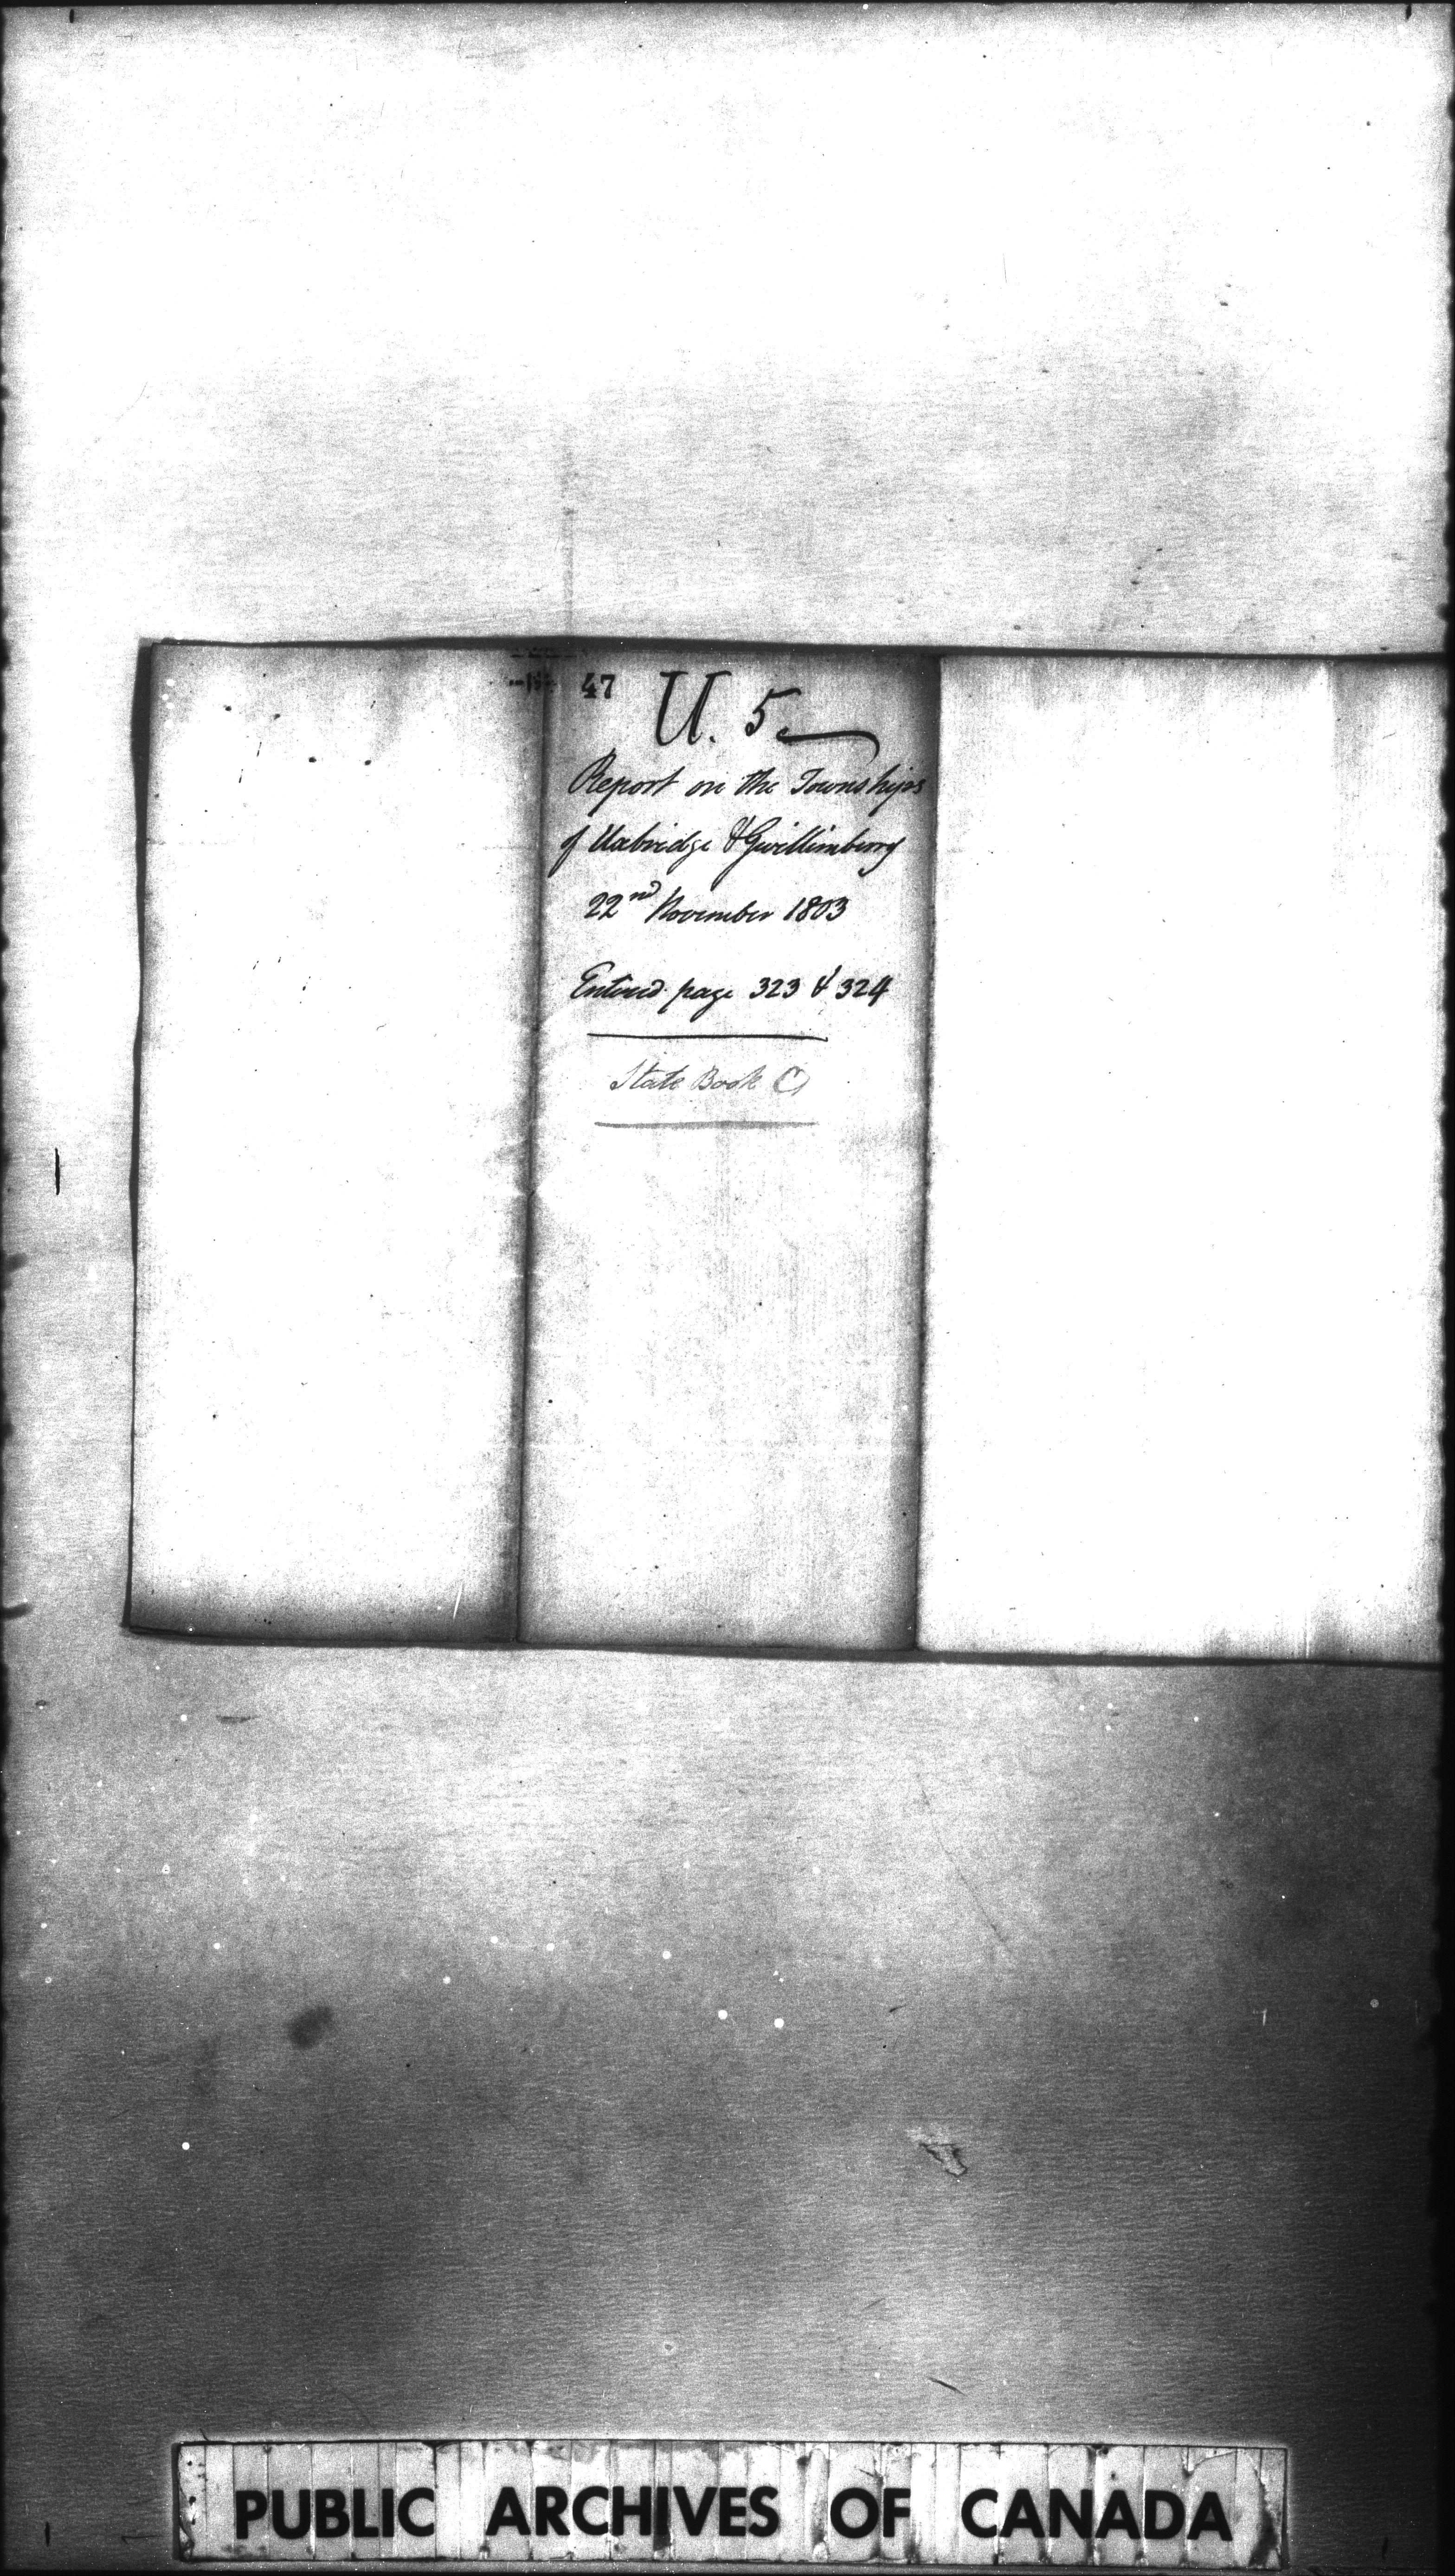 47
U. 5
Report on the Townships
of Uxbridge & Gwillimbury
22nd November 1803
Entered page 323 & 324
State Book C
PUBLIC ARCHIVES OF CANADA